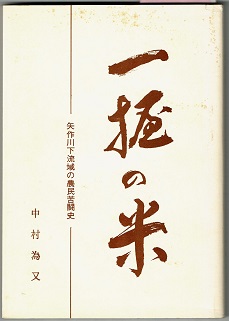 一握の米
矢作川下流域の農民苦闘史
中村為又